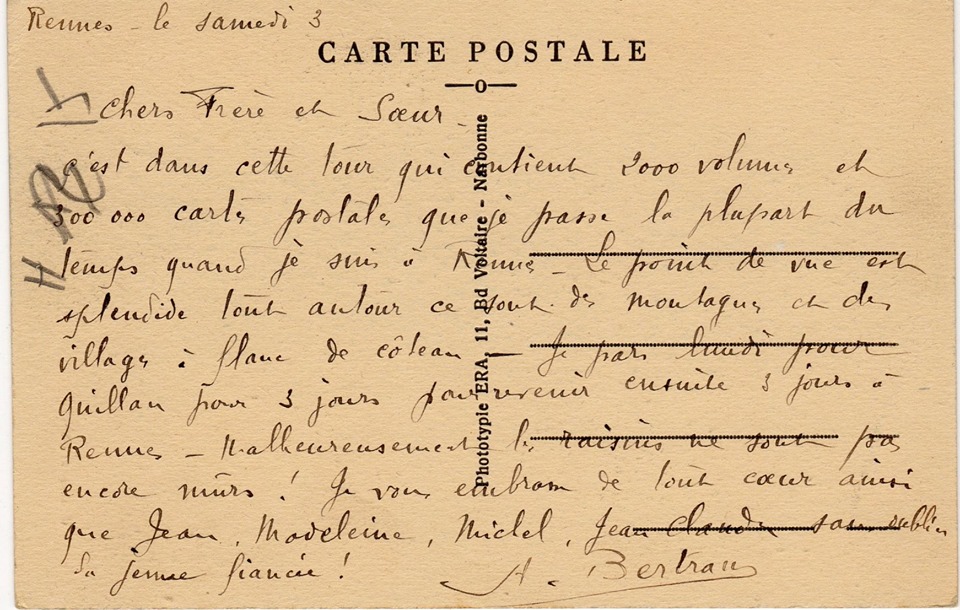 Rennes - le samedi 3
CARTE POSTALE
Chers Frère et Sœur -
c'est dans cette tour qui contient 2000 volumes et
300 000 cartes postales que je passe la plupart du
temps quand je suis à Rennes - Le point de vue est
splendide tout autour ce sont des montagnes et des
villages à flanc de côteau - Je pars lundi pour
Quillan pour 3 jours pour revenir ensuite 3 jours à
Rennes - Malheureusement les raisins ne sont pas
encore mûrs ! Je vous embrasse de tout cœur ainsi
que Jean, Madeleine, Michel, Jean claude sans oublier
sa jeune fiancée !
A. Bertrand
Phototypie ERA, 11, Bd Voltaire - Narbonne